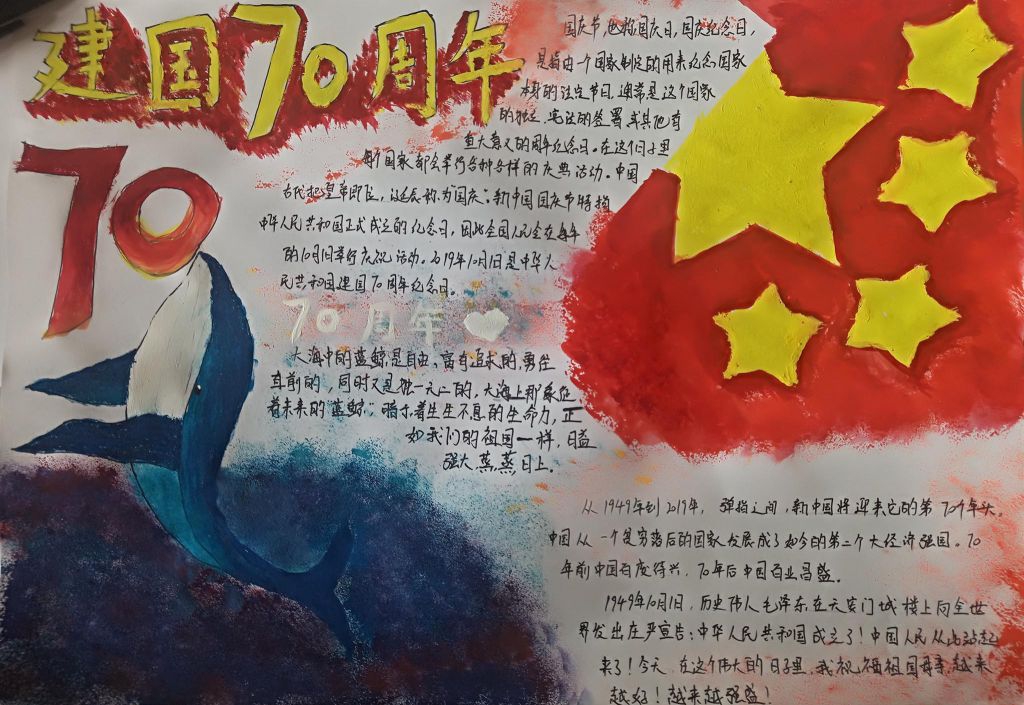 建国70周年
70
国庆节,也称国庆日,国庆纪念日,
是指由一个国家制定的用来纪念国家
本身的法定节日,通常是这个国家
的独立、宪法的签署或其他有
重大意义的周年纪念日。在这个日子里
每个国家都会举行各种各样的庆典活动。中国
古代把皇帝即位,诞辰称为"国庆"。新中国国庆节特指
中华人民共和国正式成立的纪念日,因此全国人民会在每年
的10月1日举行庆祝活动。2019年10月1日是中华人
民共和国建国70周年纪念日。
70周年
大海中的蓝鲸,是自由、富有追求的,勇往
直前的,同时又是独一无二的,大海上那象征
着未来的"蓝鲸",暗示着生生不息的生命力,正
如我们的祖国一样,日益
强大,蒸蒸日上。
从1949年到2019年,弹指之间,新中国将迎来它的第70个年头。
中国从一个贫穷落后的国家发展成了如今的第二个大经济强国。70
年前中国百废待兴,70年后中国百业昌盛。
1949年10月1日,历史伟人毛泽东在天安门城楼上向全世
界发出庄严宣告:中华人民共和国成立了!中国人民从此站起
来了!今天,在这个伟大的日子里,我祝福祖国母亲,越来
越好!越来越强盛!